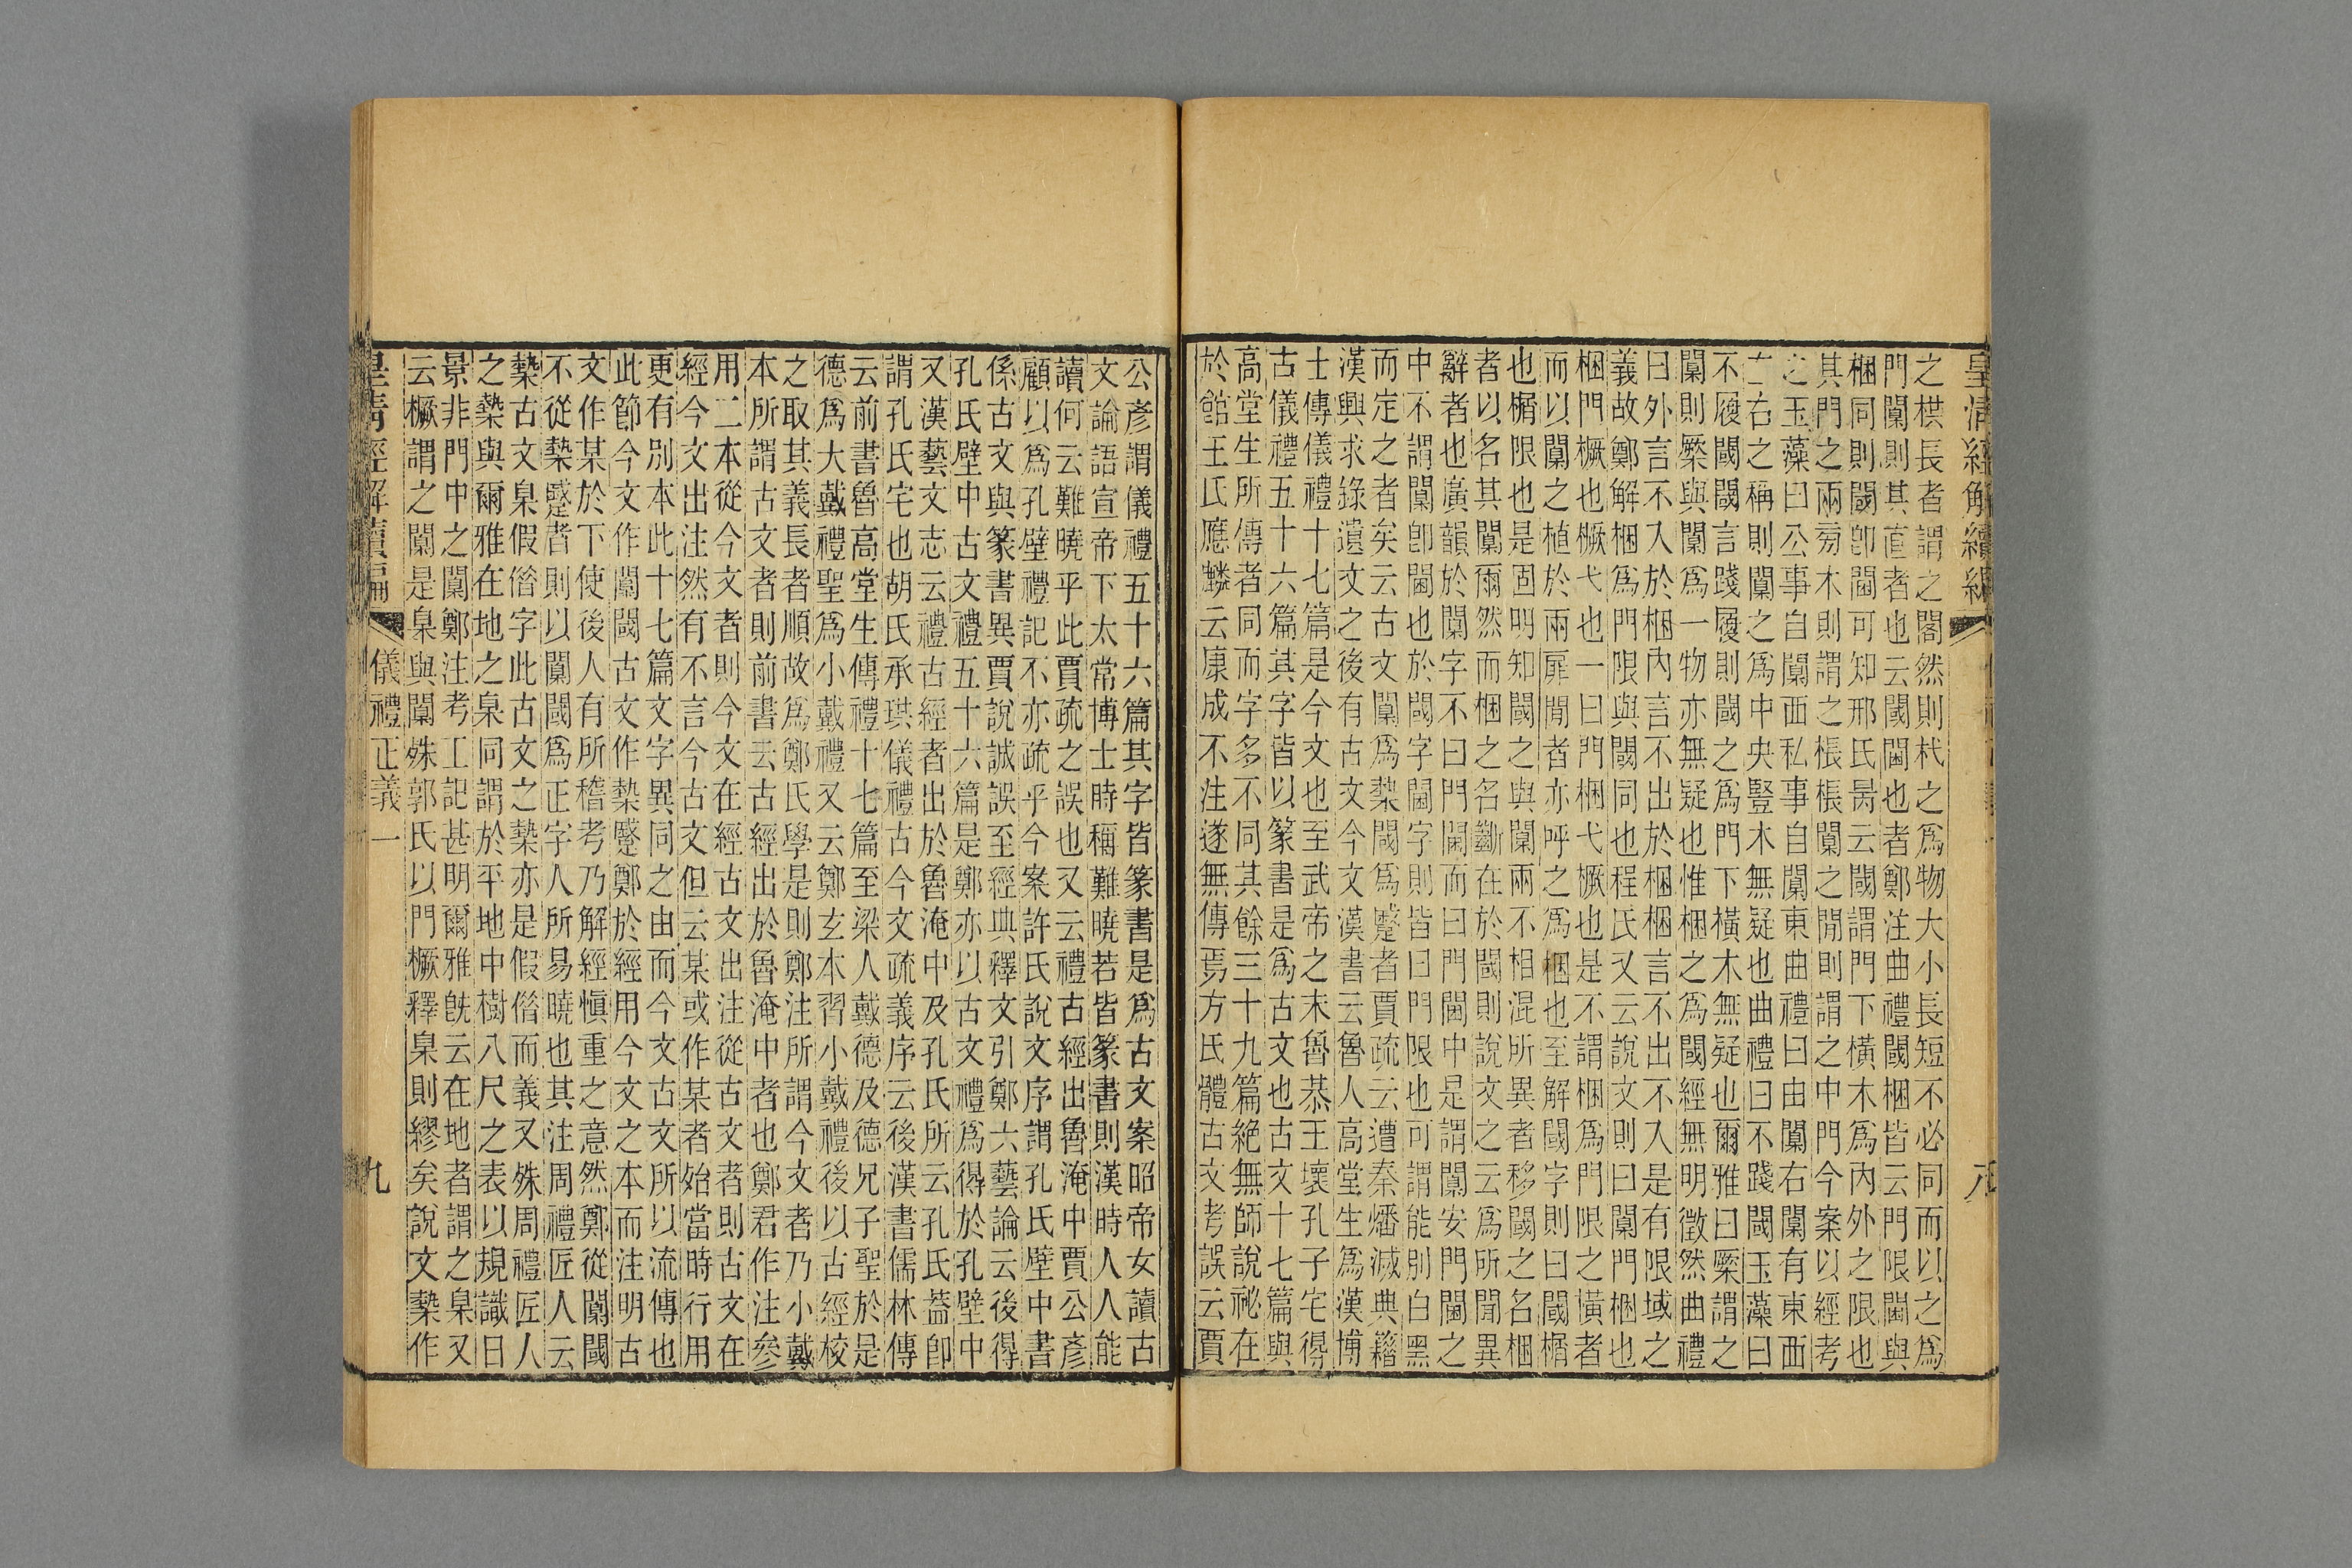 皇清經解續編
八
之栱長者謂之閣然則杙之爲物大小長短不必同而以之爲
門闑則其直者也云閾閫也者鄭注曲禮閾梱皆云門限閫與
梱同則閾卽閫可知邢氏昺云閾謂門下橫木爲內外之限也
其門之兩旁木則謂之棖棖闑之閒則謂之中門今案以經考
之玉藻曰公事自闑西私事自闑東曲禮曰由闑右闑有東西
左右之稱則闑之爲中央豎木無疑也曲禮曰不踐閾玉藻曰
不履閾閾言踐履則閾之爲門下橫木無疑也爾雅曰橜謂之
闑則橜與闑爲一物亦無疑也惟梱之爲閾經無明徵然曲禮
曰外言不入於梱內言不出於梱梱言不出不入是有限域之
義故鄭解梱爲門限與閾同也程氏又云說文則曰闑門梱也
梱門橛也橛弋也一曰門梱弋橛也是不謂梱爲門限之橫者
而以闑之植於兩扉閒者亦呼之爲梱也至解閾字則曰閾榍
也榍限也是固明知閾之與闑兩不相混所異者移閾之名梱
者以名其闑爾然而梱之名斷在於閾則說文之云爲所聞異
辭者也廣韻於闑字不曰門閫而曰門閫中是謂闑安門閫之
中不謂闑卽閫也於閾字閫字則皆曰門限也可謂能別白黑
而定之者矣云古文闑爲槷閾爲蹙者賈疏云遭秦燔滅典籍
漢興求錄遺文之後有古文今文漢書云魯人高堂生爲漢博
士傳儀禮十七篇是今文也至武帝之末魯恭王壞孔子宅得
古儀禮五十六篇其字皆以篆書是爲古文也古文十七篇與
高堂生所傳者同而字多不同其餘三十九篇絕無師說祕在
於館王氏應麟云康成不注遂無傳焉方氏體古文考誤云賈
公彥謂儀禮五十六篇其字皆篆書是爲古文案昭帝女讀古
文論語宣帝下太常博士時稱難曉若皆篆書則漢時人人能
讀何云難曉乎此賈疏之誤也又云禮古經出魯淹中賈公彥
顧以爲孔壁禮記不亦疏乎今案許氏說文序謂孔氏壁中書
係古文與篆書異賈說誠誤至經典釋文引鄭六藝論云後得
孔氏壁中古文禮五十六篇是鄭亦以古文禮爲得於孔壁中
又漢藝文志云禮古經者出於魯淹中及孔氏所云孔氏蓋卽
謂孔氏宅也胡氏承珙儀禮古今文疏義序云後漢書儒林傳
云前書魯高堂生傳禮十七篇至梁人戴德及德兄子聖於是
德爲大戴禮聖爲小戴禮又云鄭玄本習小戴禮後以古經校
之取其義長者順故爲鄭氏學是則鄭注所謂今文者乃小戴
本所謂古文者則前書云古經出於魯淹中者也鄭君作注參
用二本從今文者則今文在經古文出注從古文者則古文在
經今文出注然有不言今古文但云某或作某者始當時行用
更有別本此十七篇文字異同之由而今文古文所以流傳也
此節今文作闑閾古文作槷蹙鄭於經用今文之本而注明古
文作某於下使後人有所稽考乃解經愼重之意然鄭從闑閾
不從槷蹙者則以闑閾爲正字人所易曉也其注周禮匠人云
槷古文臬假借字此古文之槷亦是假借而義又殊周禮匠人
之槷與爾雅在地之臬同謂於平地中樹八尺之表以規識日
景非門中之闑鄭注考工記甚明爾雅旣云在地者謂之臬又
云橛謂之闑是臬與闑殊郭氏以門橛釋臬則繆矣說文槷作
皇清經解續編
儀禮正義一
九